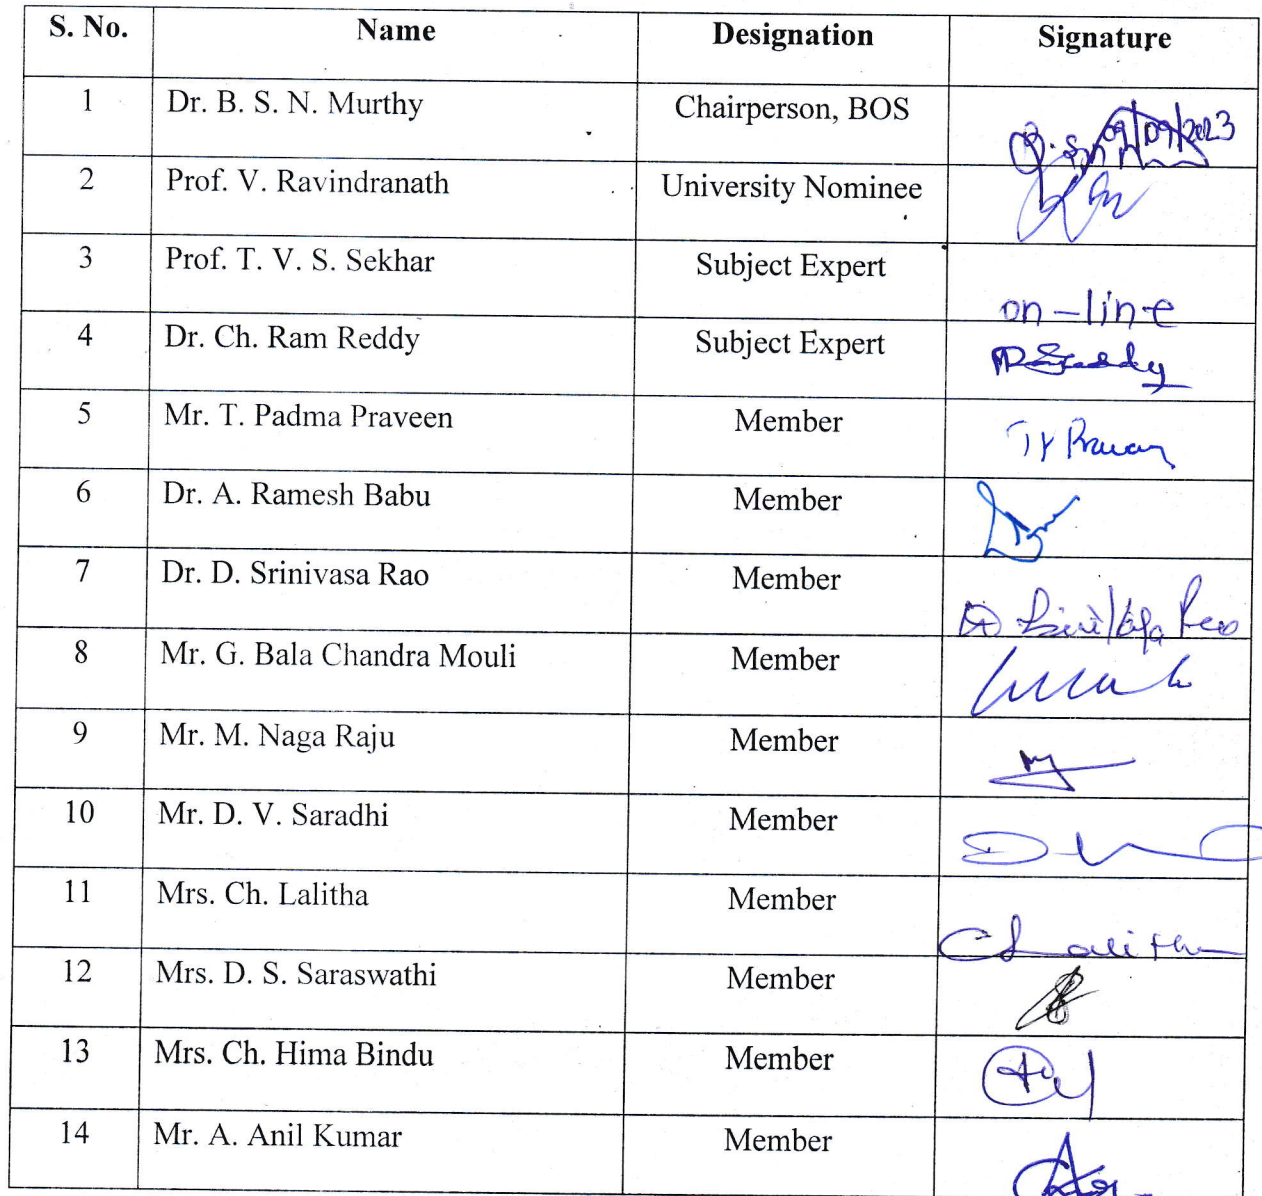 S. No. Name Designation Signature
1 Dr. B. S. N. Murthy Chairperson, BOS 09/09/2023
2 Prof. V. Ravindranath University Nominee
3 Prof. T. V. S. Sekhar Subject Expert on-line
4 Dr. Ch. Ram Reddy Subject Expert
5 Mr. T. Padma Praveen Member
6 Dr. A. Ramesh Babu Member
7 Dr. D. Srinivasa Rao Member
8 Mr. G. Bala Chandra Mouli Member
9 Mr. M. Naga Raju Member
10 Mr. D. V. Saradhi Member
11 Mrs. Ch. Lalitha Member
12 Mrs. D. S. Saraswathi Member
13 Mrs. Ch. Hima Bindu Member
14 Mr. A. Anil Kumar Member